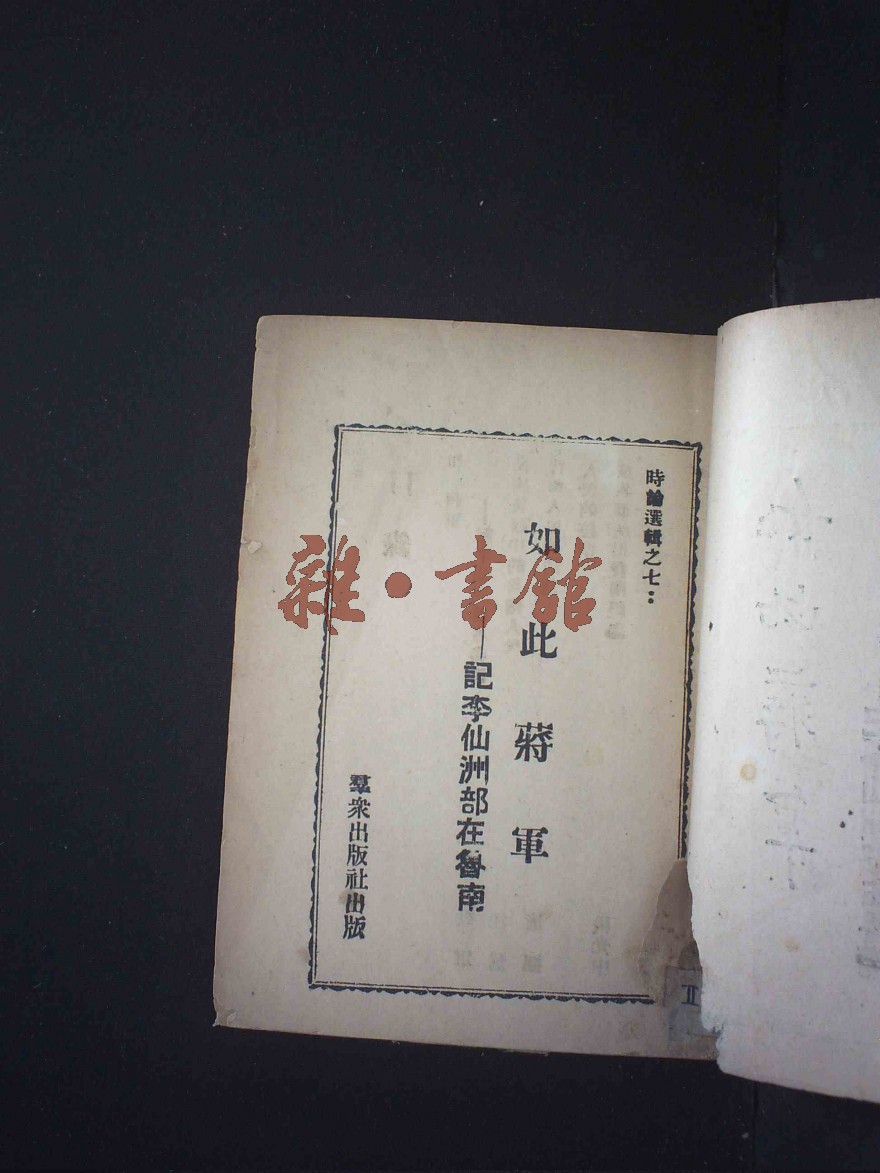 時論選輯之七：
如此蔣軍
——記李仙洲部在魯南
羣衆出版社出版
雜·書館